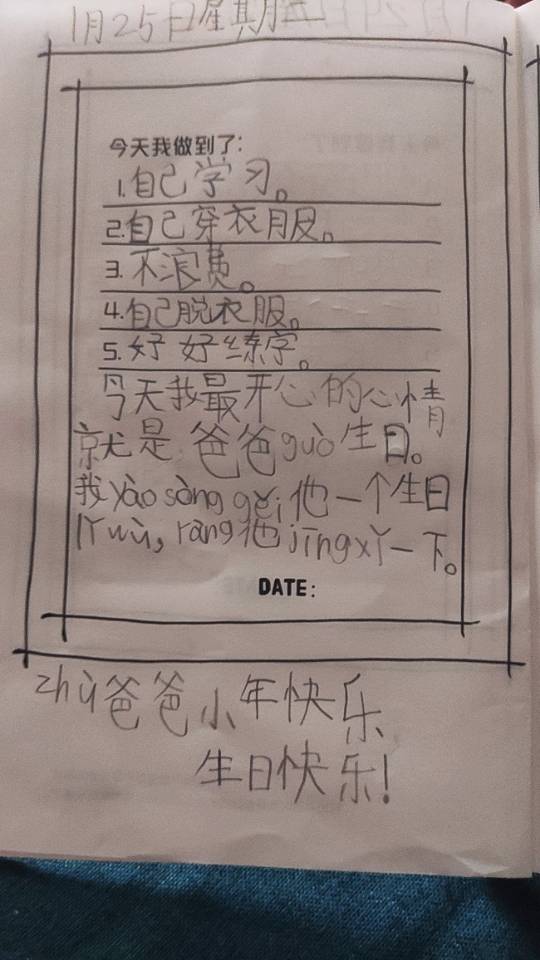 1月25日星期五
今天我做到了：
1.自己学习。
2.自己穿衣服。
3.不浪费。
4.自己脱衣服。
5.好好练字。
今天我最开心的心情
就是爸爸guò生日。
我yào sòng gěi他一个生日
lǐ wù，ràng他jīng xǐ一下。
DATE：
zhù爸爸小年快乐
生日快乐！